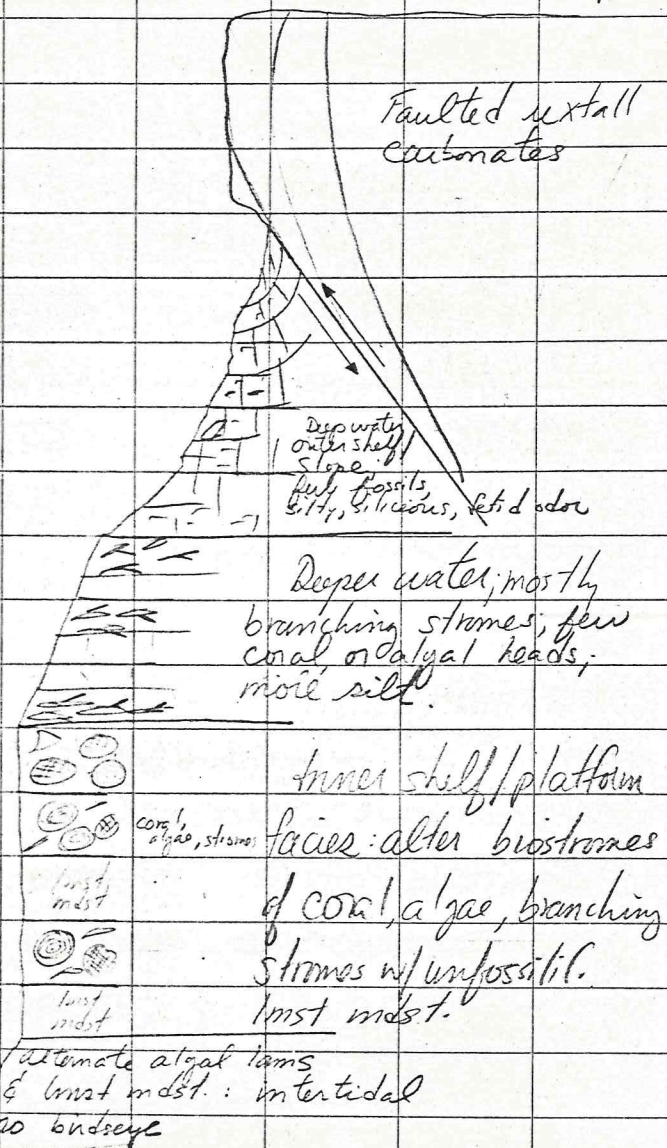 Faulted uxtall
carbonates
Deep water
outer shelf/
slope,
few fossils,
silty, silicious, fetid odor
Deeper water; mostly
branching stromes; few
coral, or algal heads;
more silt.
Inner shelf/platform
coral,
algae, stromes
facies: alter biostromes
lmst
mdst
of coral, algae, branching
stromes w/ unfossilif.
lmst
mdst
lmst mdst.
alternate algal lams
& lmst mdst.: intertidal
no birdseye